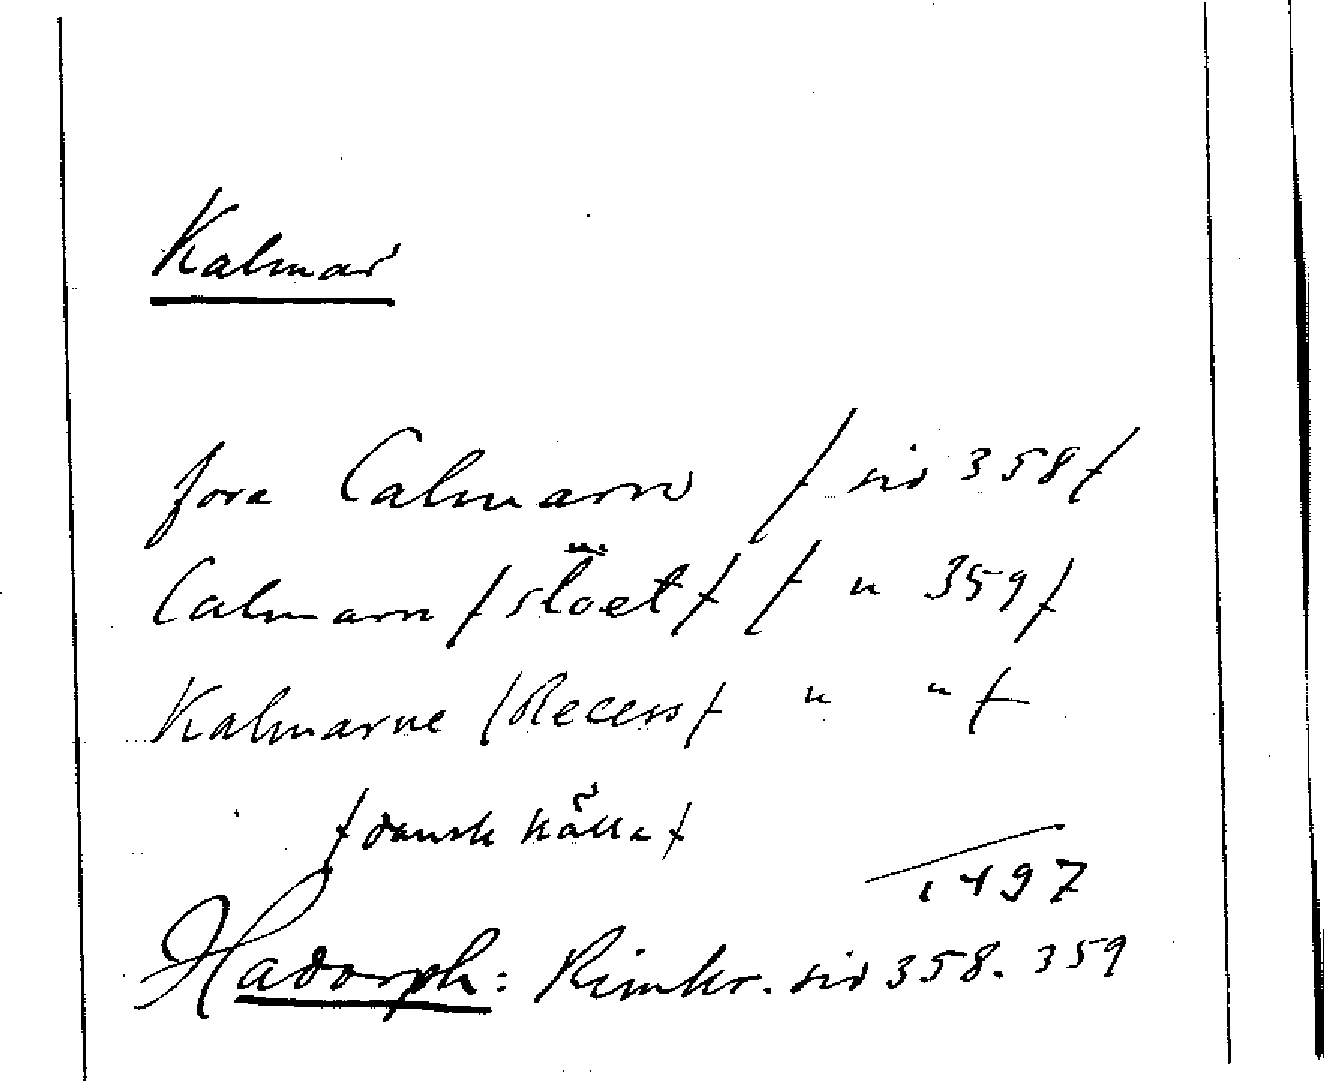 Kalmar
fore Calmarn / sid 358/
Calmarn / slöet / / " 359/
Kalmarne /Recess/ " " /
/dansk källa/
1497
Hadorph: Rimkr. sid 358. 359